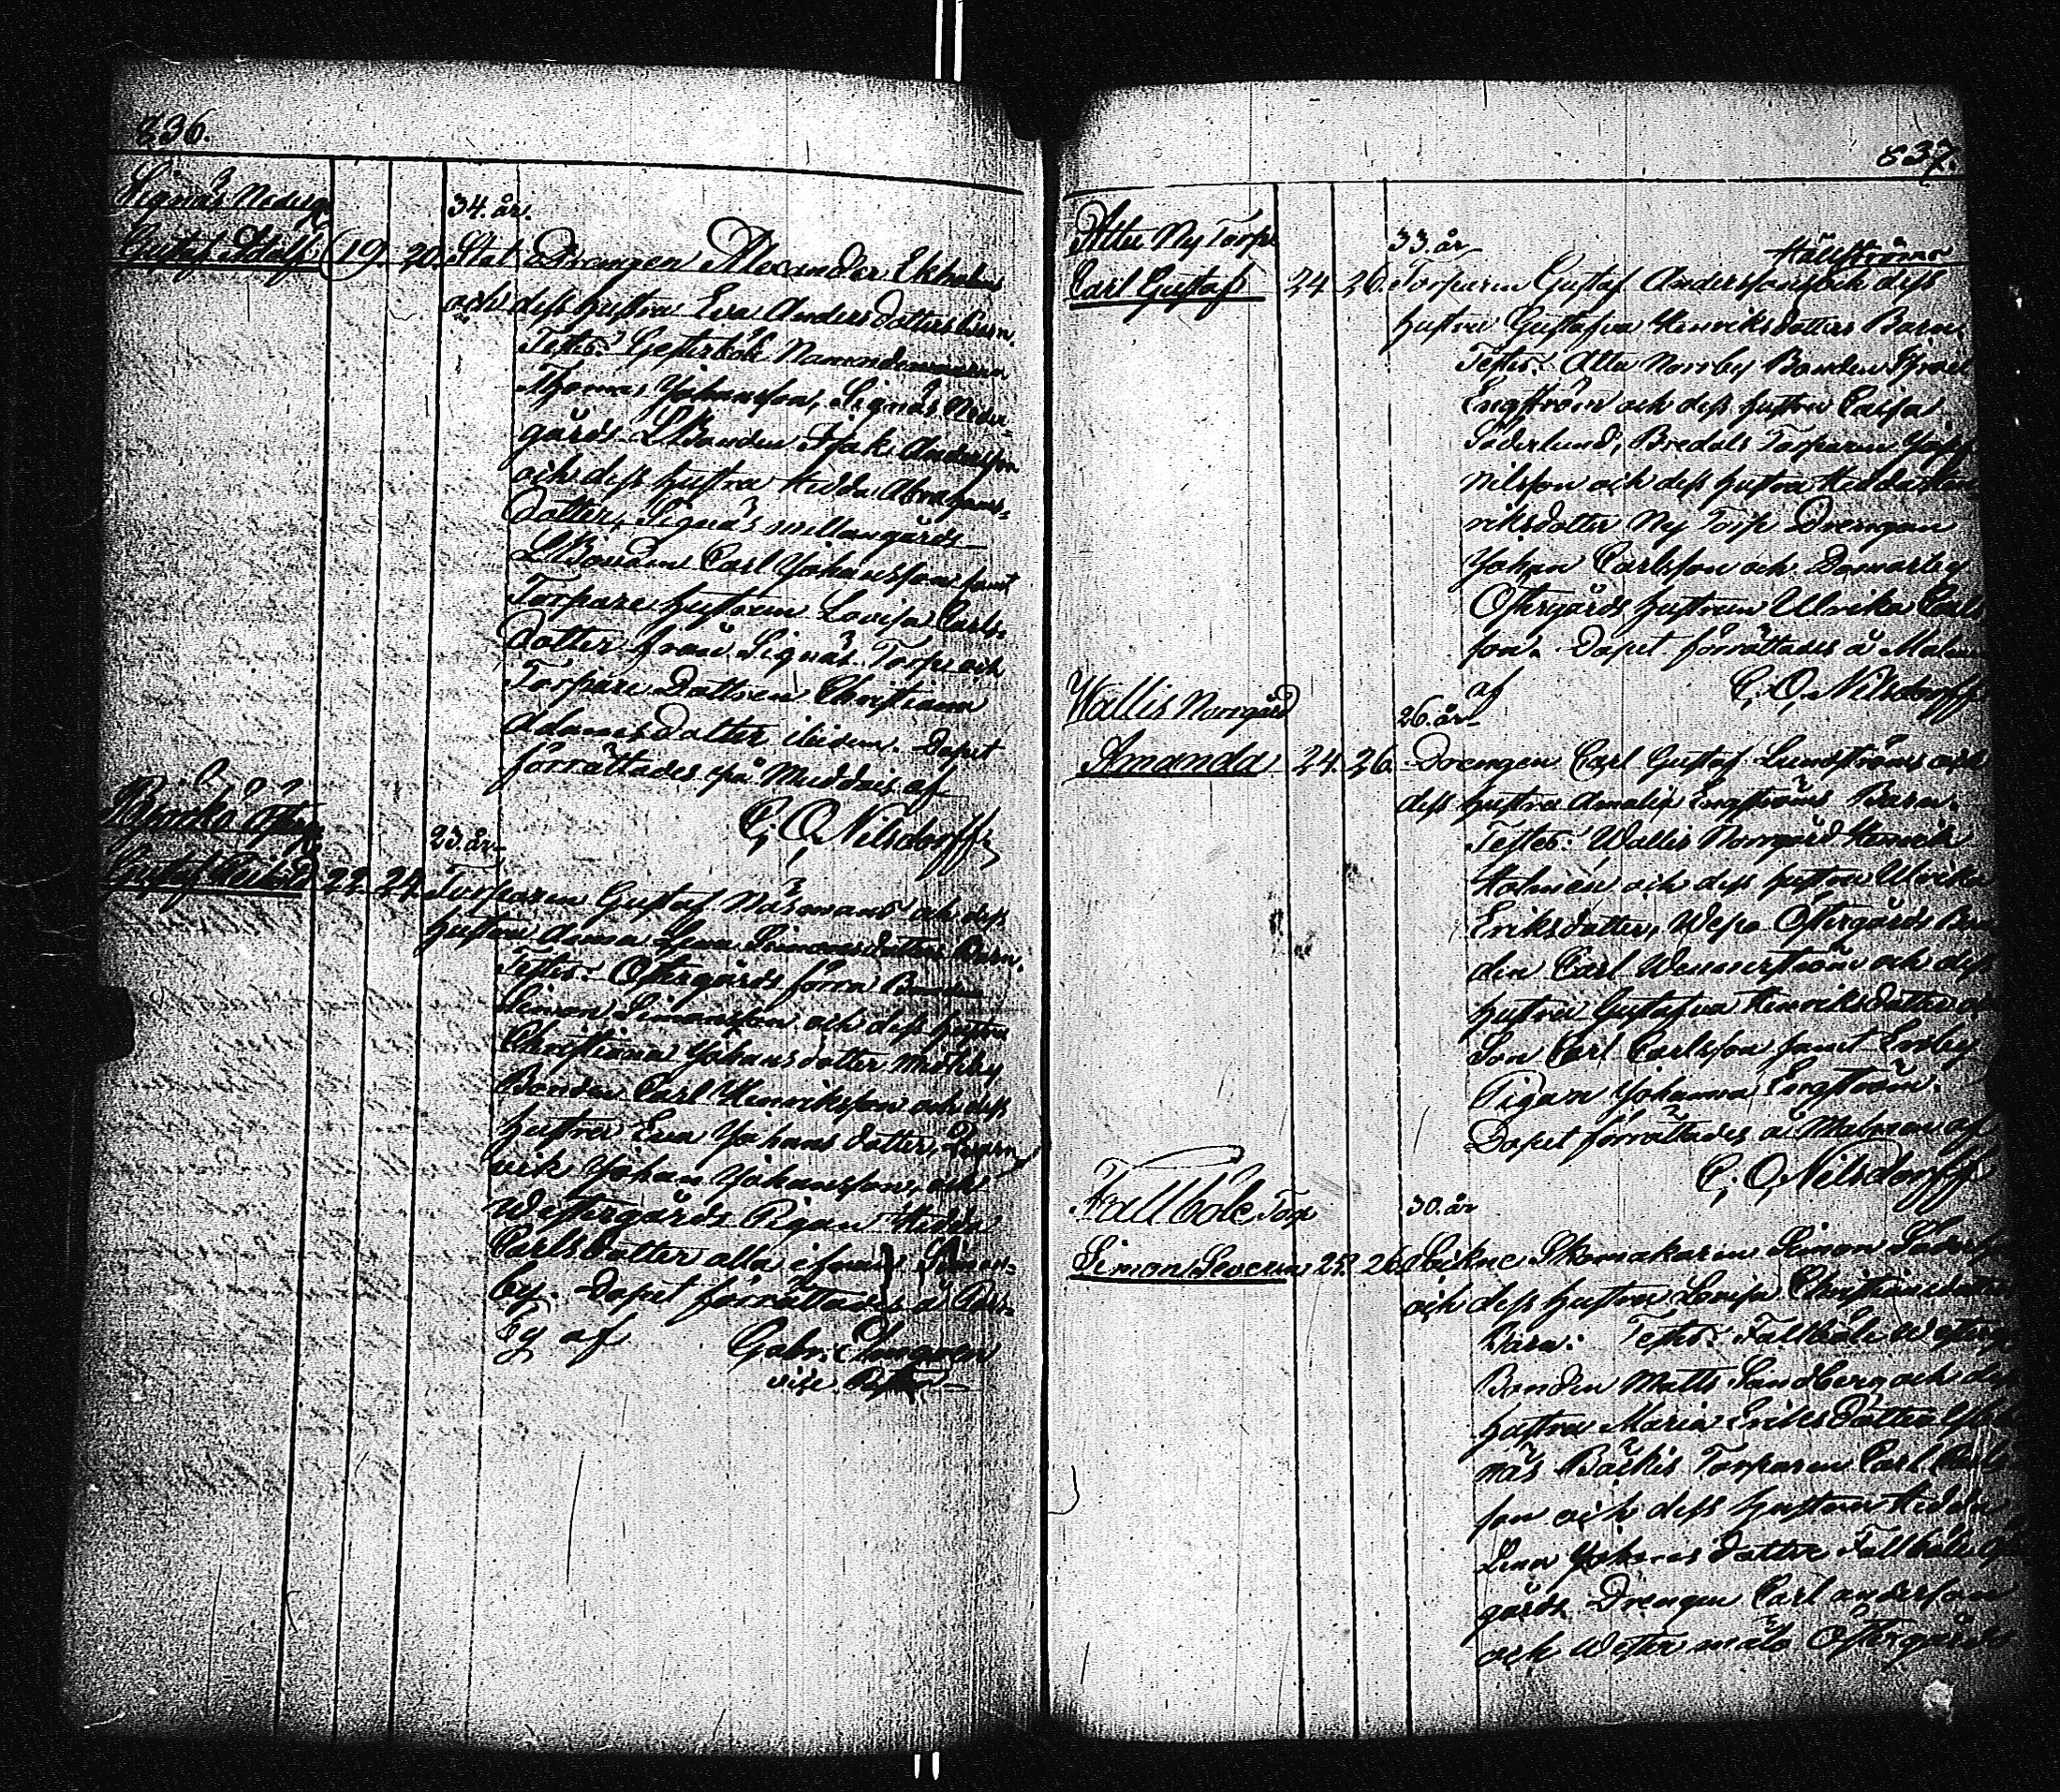 836.
Signäs Nederg
34. år.
Gustaf Adolf 19 20. Stat Drengen Alexander Ekholms
och dess hustru Eva Anders dotters Barn.
Testes: Gesterbÿ Nämndemannen
Thomas Johansson, Signäs Neder-
gårds LBonden Isak Andersson
och dess hustru Hedda Abrahams-
dotter, Signäs mellangårds
LBonden Carl Johansson samt
Torpare hustrun Lovisa Carls-
dotter från Signäs Torp och
Torpare Dottren Christina
Adamsdotter ibidem. Dopet
förrättades på Muddais af
C. O. Nilsdorff
23. år
Gustaf 22 24. Torparen Gustaf Näsmans och dess
hustru Anna Lena Simonsdotters Barn.
Testes: Östergårds förra Bonden
Simon Simonsson och dess hustru
Christiana Johansdotter
Bonden Carl Henriksson och dess
hustru Eva Johans dotter,
vik Johan Johansson, och
Westergårds Pigan Hedda
Carlsdotter alla ifrån Simon-
by. Dopet förrättades å
by af Gabr.
vice Pastor
837.
Attu Ny Torp
33. år Hällströms
Carl Gustaf 24 26. Torparen Gustaf Anderssons och dess
hustru Gustafva Henriksdotters Barn.
Testes: Attu Norrby Bonden Israel
Engström och dess hustru Caisa
Söderlund, Bredals Torparen
Nilsson och dess hustru Hedda Hen
riksdotter Ny Torp Drengen
Johan Carlsson och Domarby
Östergårds hustrun Ulrika Carls
son. Dopet förrättades å Malm
af C. O. Nilsdorff
Wallis Norrgård
26. år
Amanda 24. 26. Drengen Carl Gustaf Lundströms och
dess hustru Amalia Engströms Barn.
Testes: Wallis Norrgård Henrik
Holmén och dess hustru Ulrika
Eriksdotter, Wepo Östergårds Bon
den Carl Wennerström och dess
hustru Gustafva Henriksdotter
Son Carl Carlsson samt
Pigan Johanna Engström.
Dopet förrättades å Malmen af
C. O. Nilsdorff
Fallböle Torp
30. år
Simon Severin 25. 26. Sockne Skomakaren Simon
och dess hustru Lovisa Christiansdotters
Barn: Testes: Fallböle Westerg
Bonden Matts Sandberg och dess
hustru Maria Eriksdotter
näs Bäckis Torparen Carl Carls
son och dess hustru Hedda
Lena Johansdotter Fallböle
gårds Drengen Carl Andersson
och Wester målo Östergårds